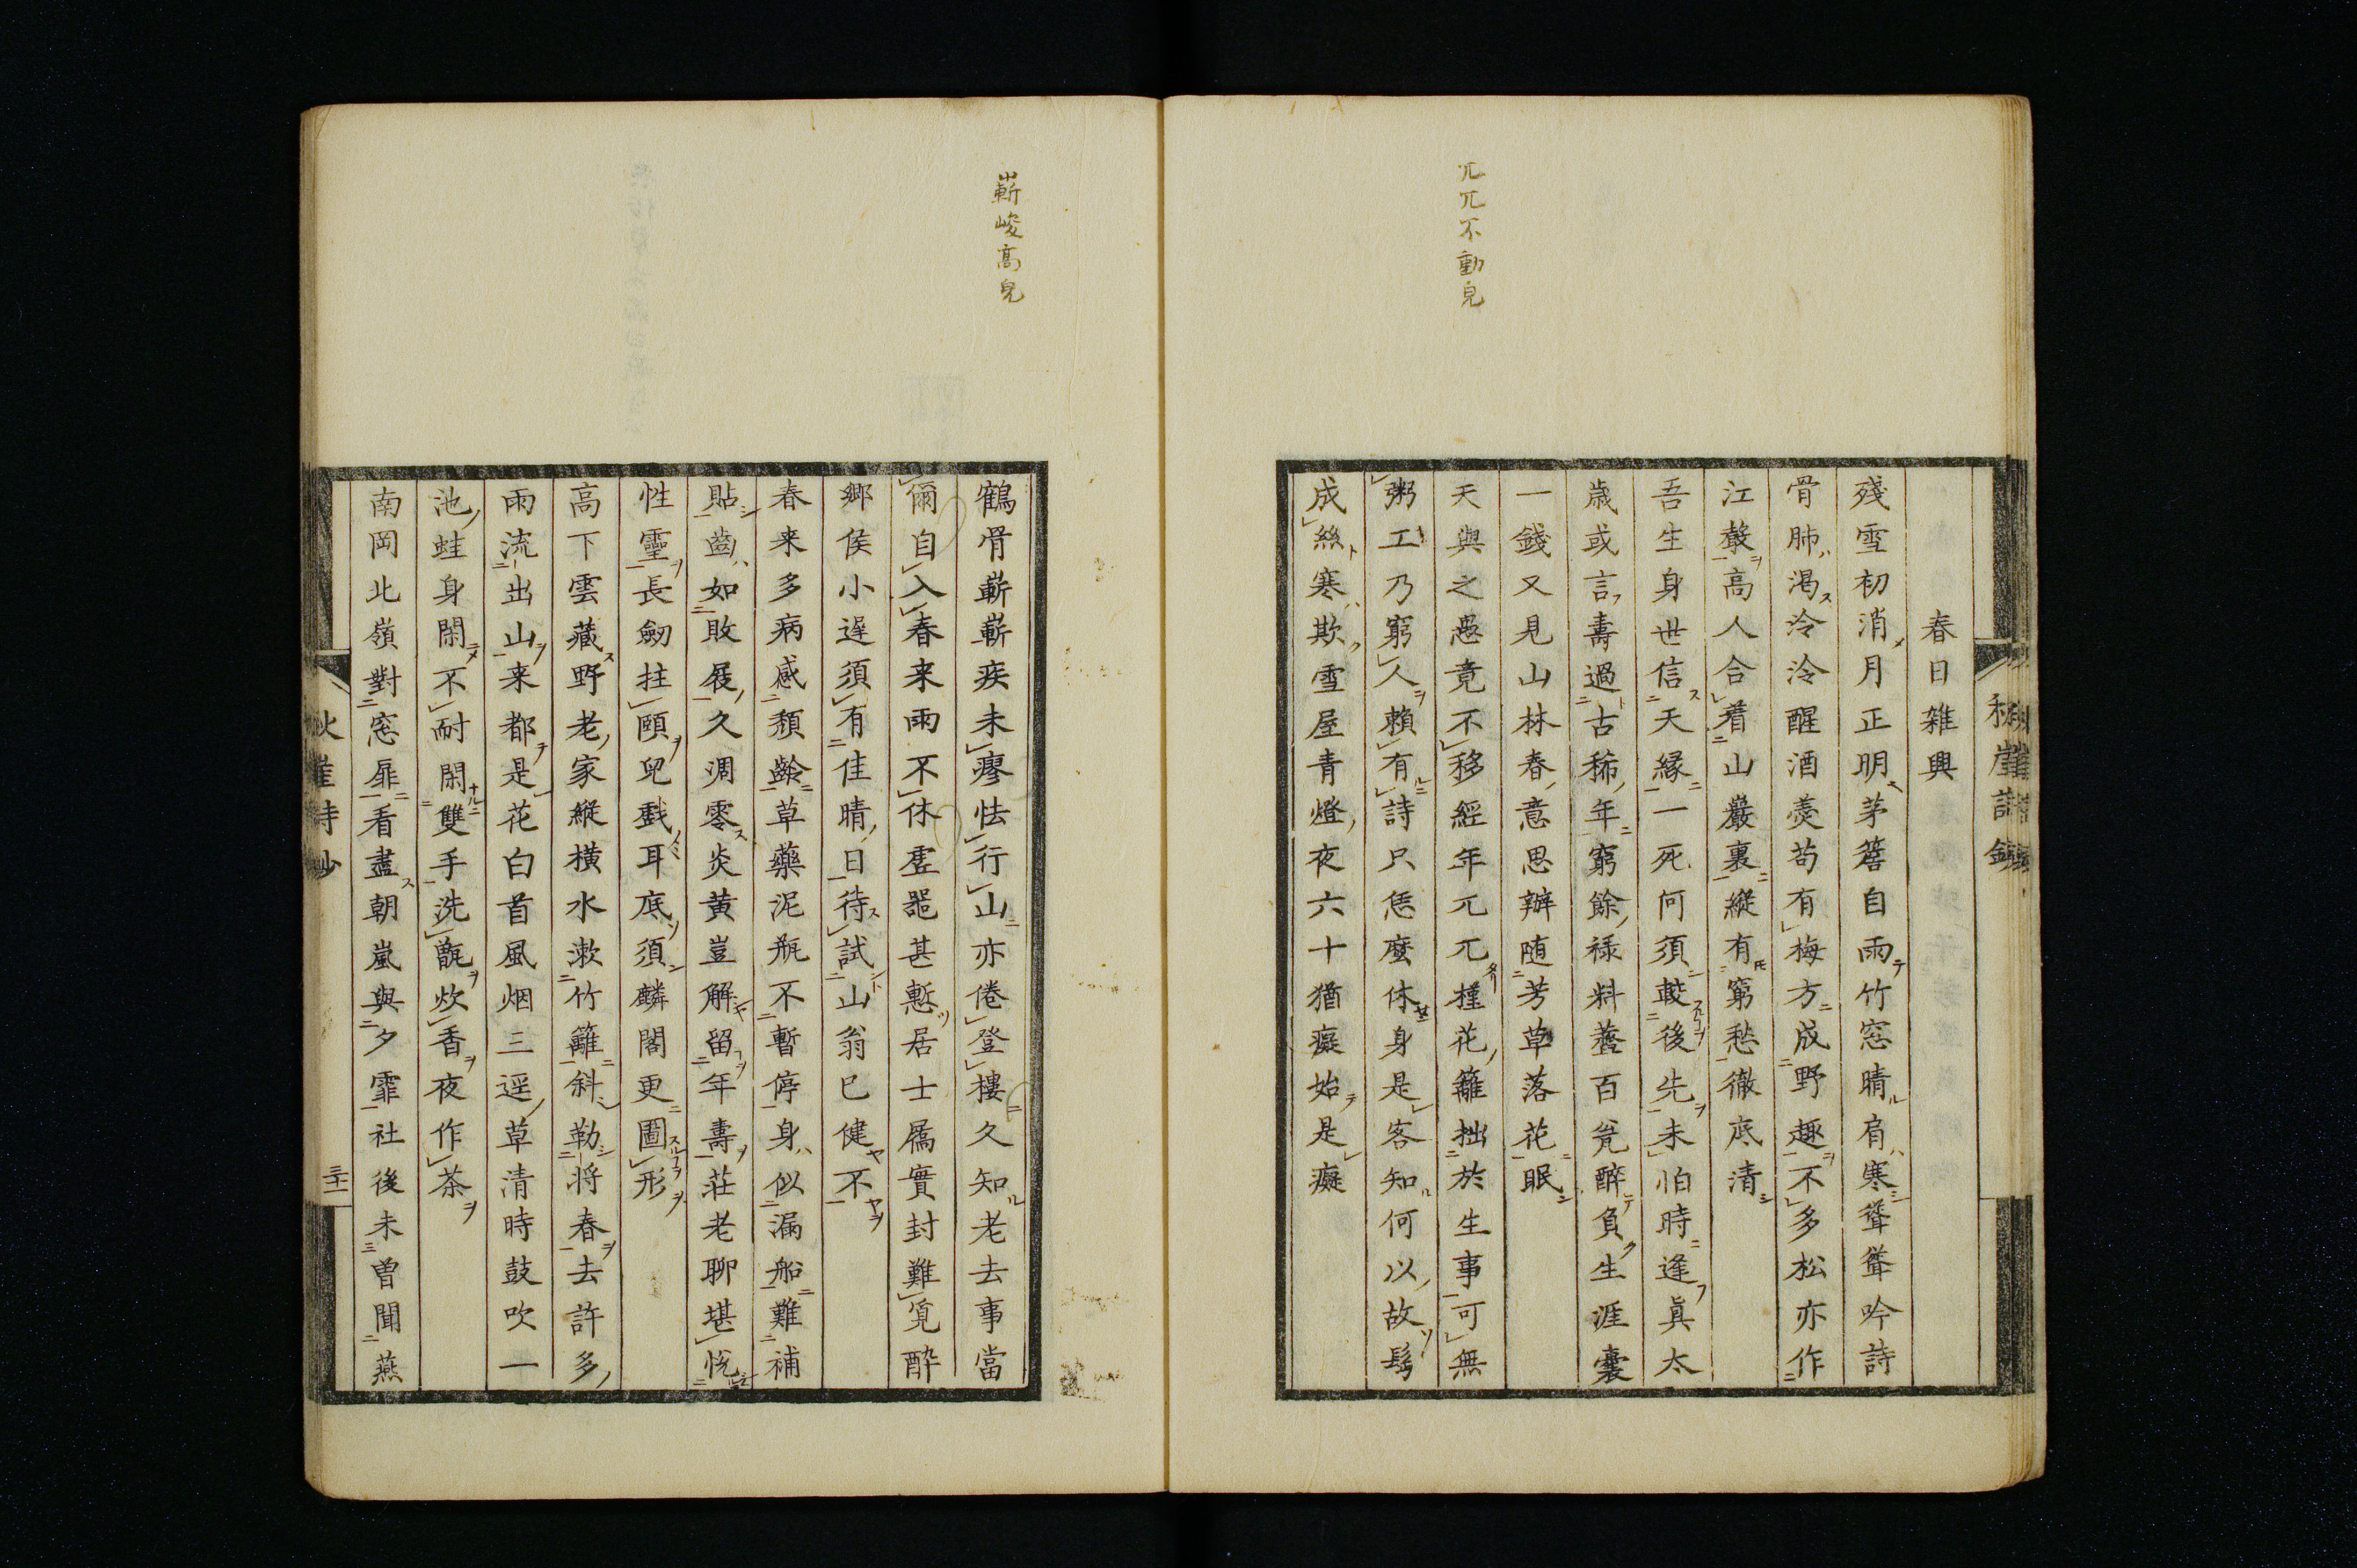 兀兀不動皃
春日雑興
殘雪初消月正明茅簷自雨竹窓晴肩寒聳聳吟詩
骨肺渇泠泠醒酒羮苟有梅方成野趣不多松亦作
江聲高人合着山巖裏縱有窮愁徹底清
吾生身世信天縁一死何須較後先未怕時逢眞太
歳或言壽過古稀年窮餘禄料虀百瓮醉負生涯嚢
一錢又見山林春意思辦随芳草落花眠
天與之愚竟不移經年兀兀槿花籬拙於生事可無
粥工乃窮人頼有詩只恁麼休身是客知何以故髩
成絲寒欺雪屋青燈夜六十猶癡始是癡
嶄峻高皃
鶴骨嶄嶄疾未瘳怯行山亦倦登樓久知老去事當
爾自入春来雨不休虚噐甚慙居士屩實封難覓酔
郷侯小遅須有佳晴日待試山翁已健不
春来多病感頽齡草藥泥瓶不暫停身似漏船難補
貼齒如敗屐久凋零炎黄豈解留年壽莊老聊堪悦
性靈長劒拄頤兒戲耳底須麟閣更圖形
高下雲藏野老家縱横水漱竹籬斜勒将春去許多
雨流出山来都是花白首風烟三逕草清時鼓吹一
池蛙身閑不耐閑雙手洗甑炊香夜作茶
南岡北嶺對窓扉看盡朝嵐與夕霏社後未曽聞燕
秋崖詩鈔
三十一